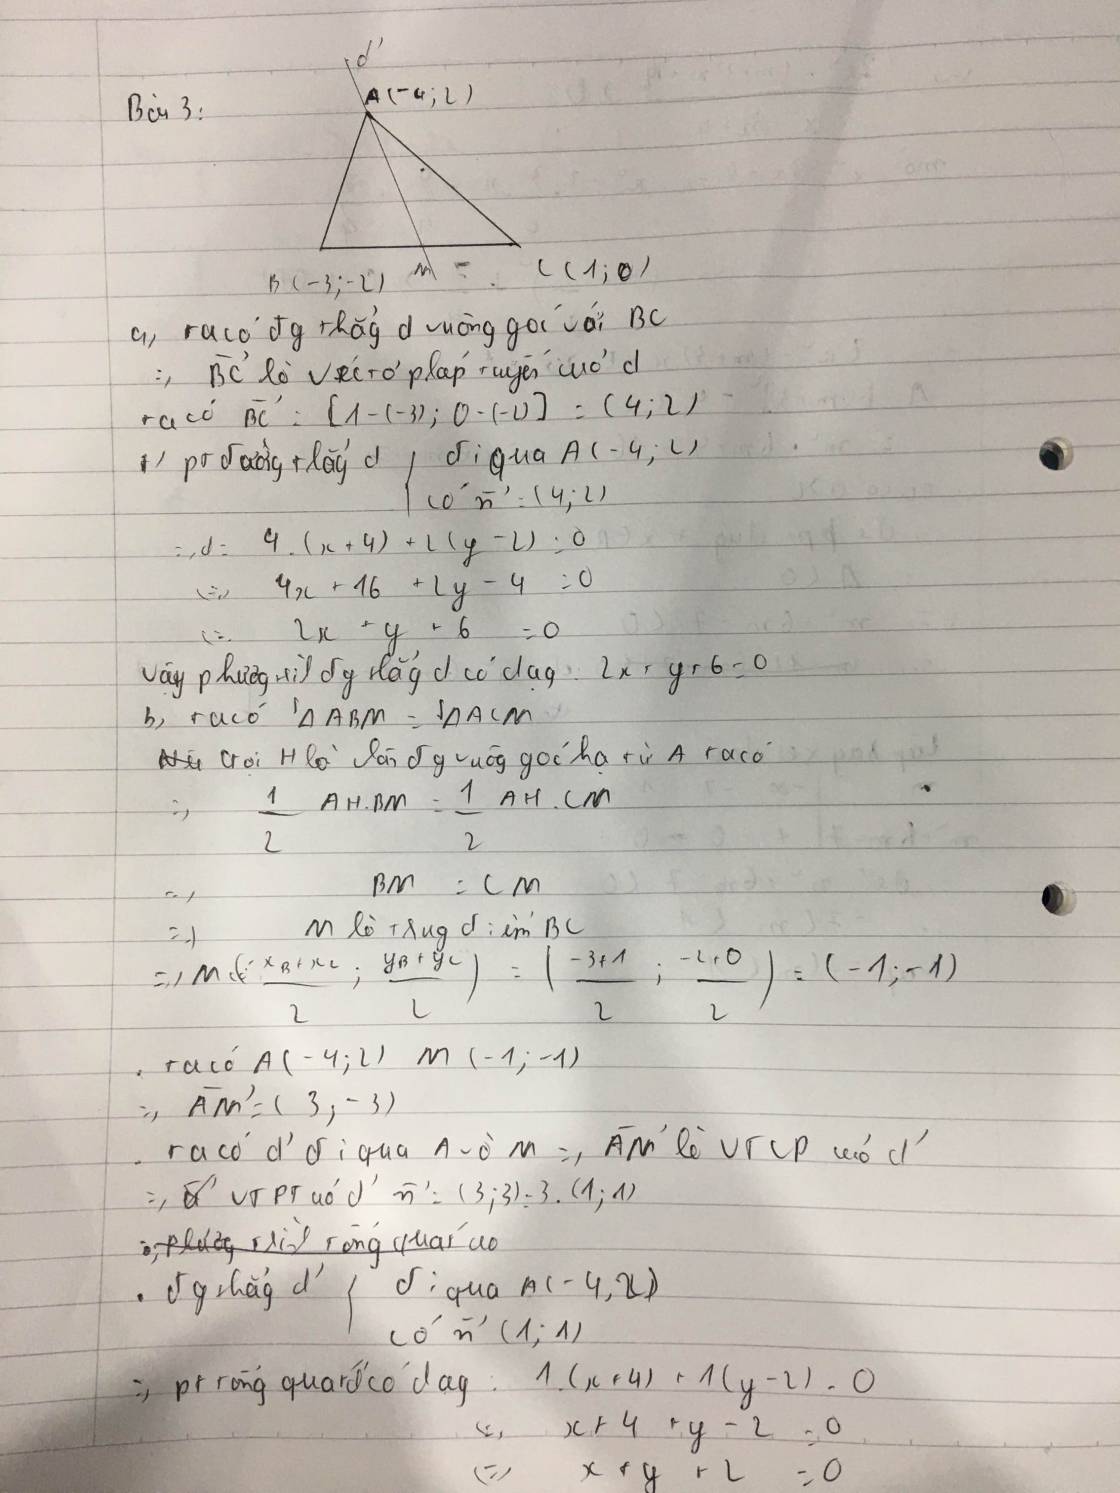 d'
Bài 3:
A(-4;2)
B(-3;-2) M C(1;0)
a, ta có đg thẳg d vuông góc với BC
=> BC là véctơ pháp tuyến của d
ta có BC = [1-(-3); 0-(-2)] = (4;2)
pt đường thẳg d { đi qua A(-4;2)
có n = (4;2)
=> d: 4.(x+4) + 2(y-2) = 0
<=> 4x + 16 + 2y - 4 = 0
<=> 2x + y + 6 = 0
Vậy phươg trìh đg thẳg d có dạg: 2x+y+6=0
b, ta có S△ABM = S△ACM
Gọi H là chân đg vuôg góc hạ từ A ta có
=> 1/2 AH.BM = 1/2 AH.CM
=> BM = CM
=> M là trug điểm BC
=> M (xB+xC/2; yB+yC/2) = (-3+1/2; -2+0/2) = (-1;-1)
. ta có A(-4;2) M(-1;-1)
=> AM = (3;-3)
. ta có d' đi qua A và M => AM là VTCP của d'
=> VTPT của d' n = (3;3) = 3.(1;1)
=> phươg trìh tổng quát của
. đg thẳg d' { đi qua A(-4;2)
có n (1;1)
=> pt tổng quát d' có dạg: 1.(x+4) + 1(y-2) = 0
<=> x+4 + y-2 = 0
<=> x+y+2 = 0